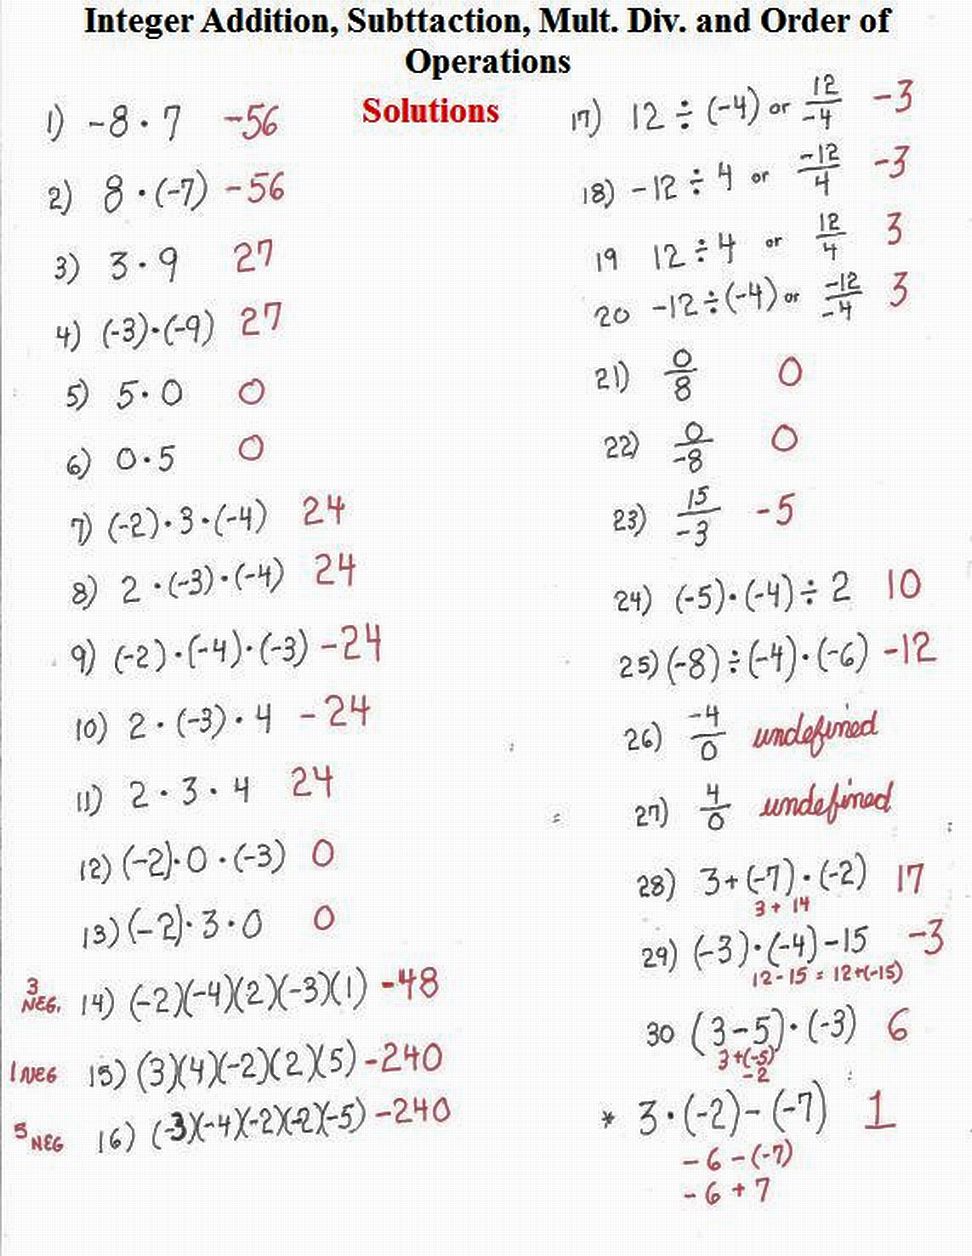 Integer Addition, Subttaction, Mult. Div. and Order of
Operations
Solutions
1) -8 · 7 -56
2) 8 · (-7) -56
3) 3 · 9 27
4) (-3)·(-9) 27
5) 5 · 0 0
6) 0 · 5 0
7) (-2)·3·(-4) 24
8) 2 ·(-3)·(-4) 24
9) (-2)·(-4)·(-3) -24
10) 2 · (-3) · 4 -24
11) 2 · 3 · 4 24
12) (-2)·0·(-3) 0
13) (-2)·3·0 0
3 NEG. 14) (-2)(-4)(2)(-3)(1) -48
1 NEG 15) (3)(4)(-2)(2)(5) -240
5 NEG 16) (-3)(-4)(-2)(-2)(-5) -240
17) 12 ÷ (-4) or 12/-4 -3
18) -12 ÷ 4 or -12/4 -3
19 12 ÷ 4 or 12/4 3
20 -12 ÷ (-4) or -12/-4 3
21) 0/8 0
22) 0/-8 0
23) 15/-3 -5
24) (-5)·(-4) ÷ 2 10
25) (-8) ÷ (-4)·(-6) -12
26) -4/0 undefined
27) 4/0 undefined
28) 3+(-7)·(-2) 17
3 + 14
29) (-3)·(-4)-15 -3
12-15 = 12+(-15)
30 (3-5)·(-3) 6
3+(-5)
-2
* 3·(-2)-(-7) 1
-6-(-7)
-6+7